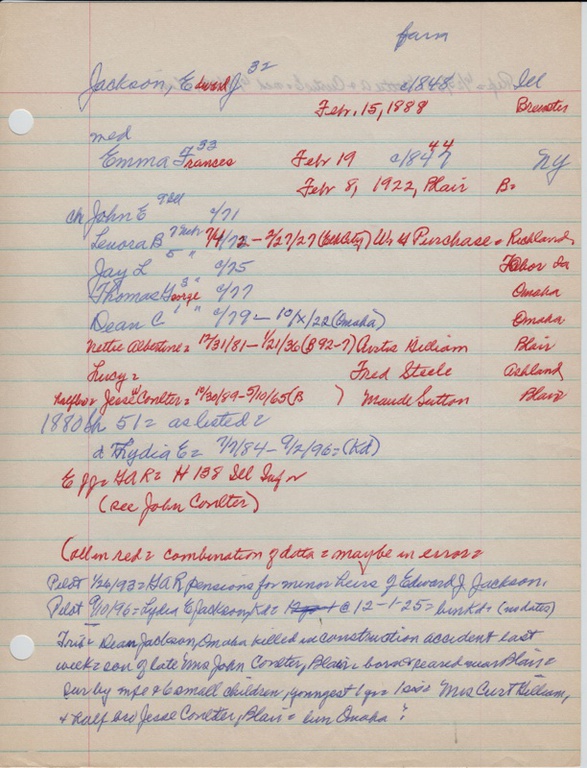 farm
Jackson, Edward J 32 c/1848 Ill
Febr. 15, 1888 Brewster
med
Emma Frances 33 Febr 19 c/1847 44 NY
Febr 8, 1922, Blair B=
ch John E 9 Ill c/71
Lenora B 7 Nebr 7/4/72 - 2/27/27 (Tek City) Wr H Purchase = Richland
Jay L 5 " c/75 Tabor Ia
Thomas George 3 " c/77 Omaha
Dean C 1 " c/79 - 10/x/22 (Omaha) Omaha
Nettie Albertine = 12/31/81 - 1/21/36 (B 92-7) Curtis William Blair
Lucy = Fred Steele Ashland
halfbro Jesse W Coulter = 10/30/89 - 5/10/65 (B ) Maude Sutton Blair
1880 ch 51 = as listed =
d Lydia E = 7/7/84 - 9/2/96 = (Kd)
E J J = GAR = H 138 Ill Inf
(see John Coulter)
(all in red = combination of data = maybe in error =
Pilot 1/26/93 = GAR pensions for minor heirs of Edward J. Jackson.
Pilot 9/10/96 = Lydia E Jackson, Kd = @ 12-1-25 = bur Kd = (no dates)
Trib = Dean Jackson, Omaha killed in construction accident last
week = son of late Mrs John Coulter, Blair = born & reared near Blair =
sur by wife & 6 small children, youngest 1 yr = 1 sis = Mrs Curt William,
& half bro Jesse Coulter, Blair = bur Omaha